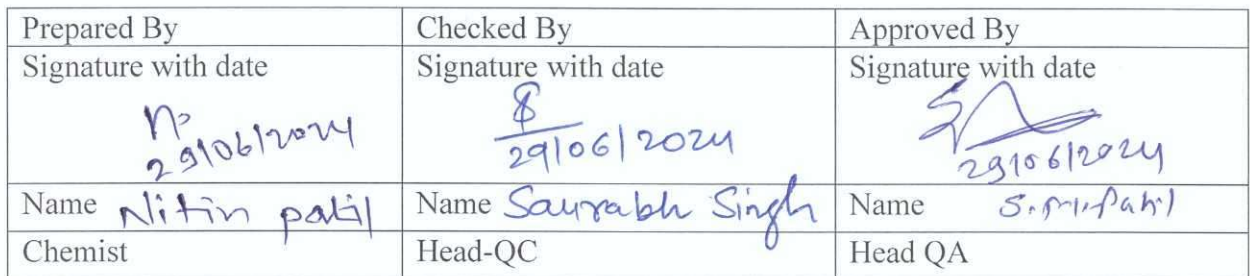 Prepared By Checked By Approved By
Signature with date Signature with date Signature with date
29/06/2024 29/06/2024 29/06/2024
Name Nitin patil Name Saurabh Singh Name S.M.Patil
Chemist Head-QC Head QA